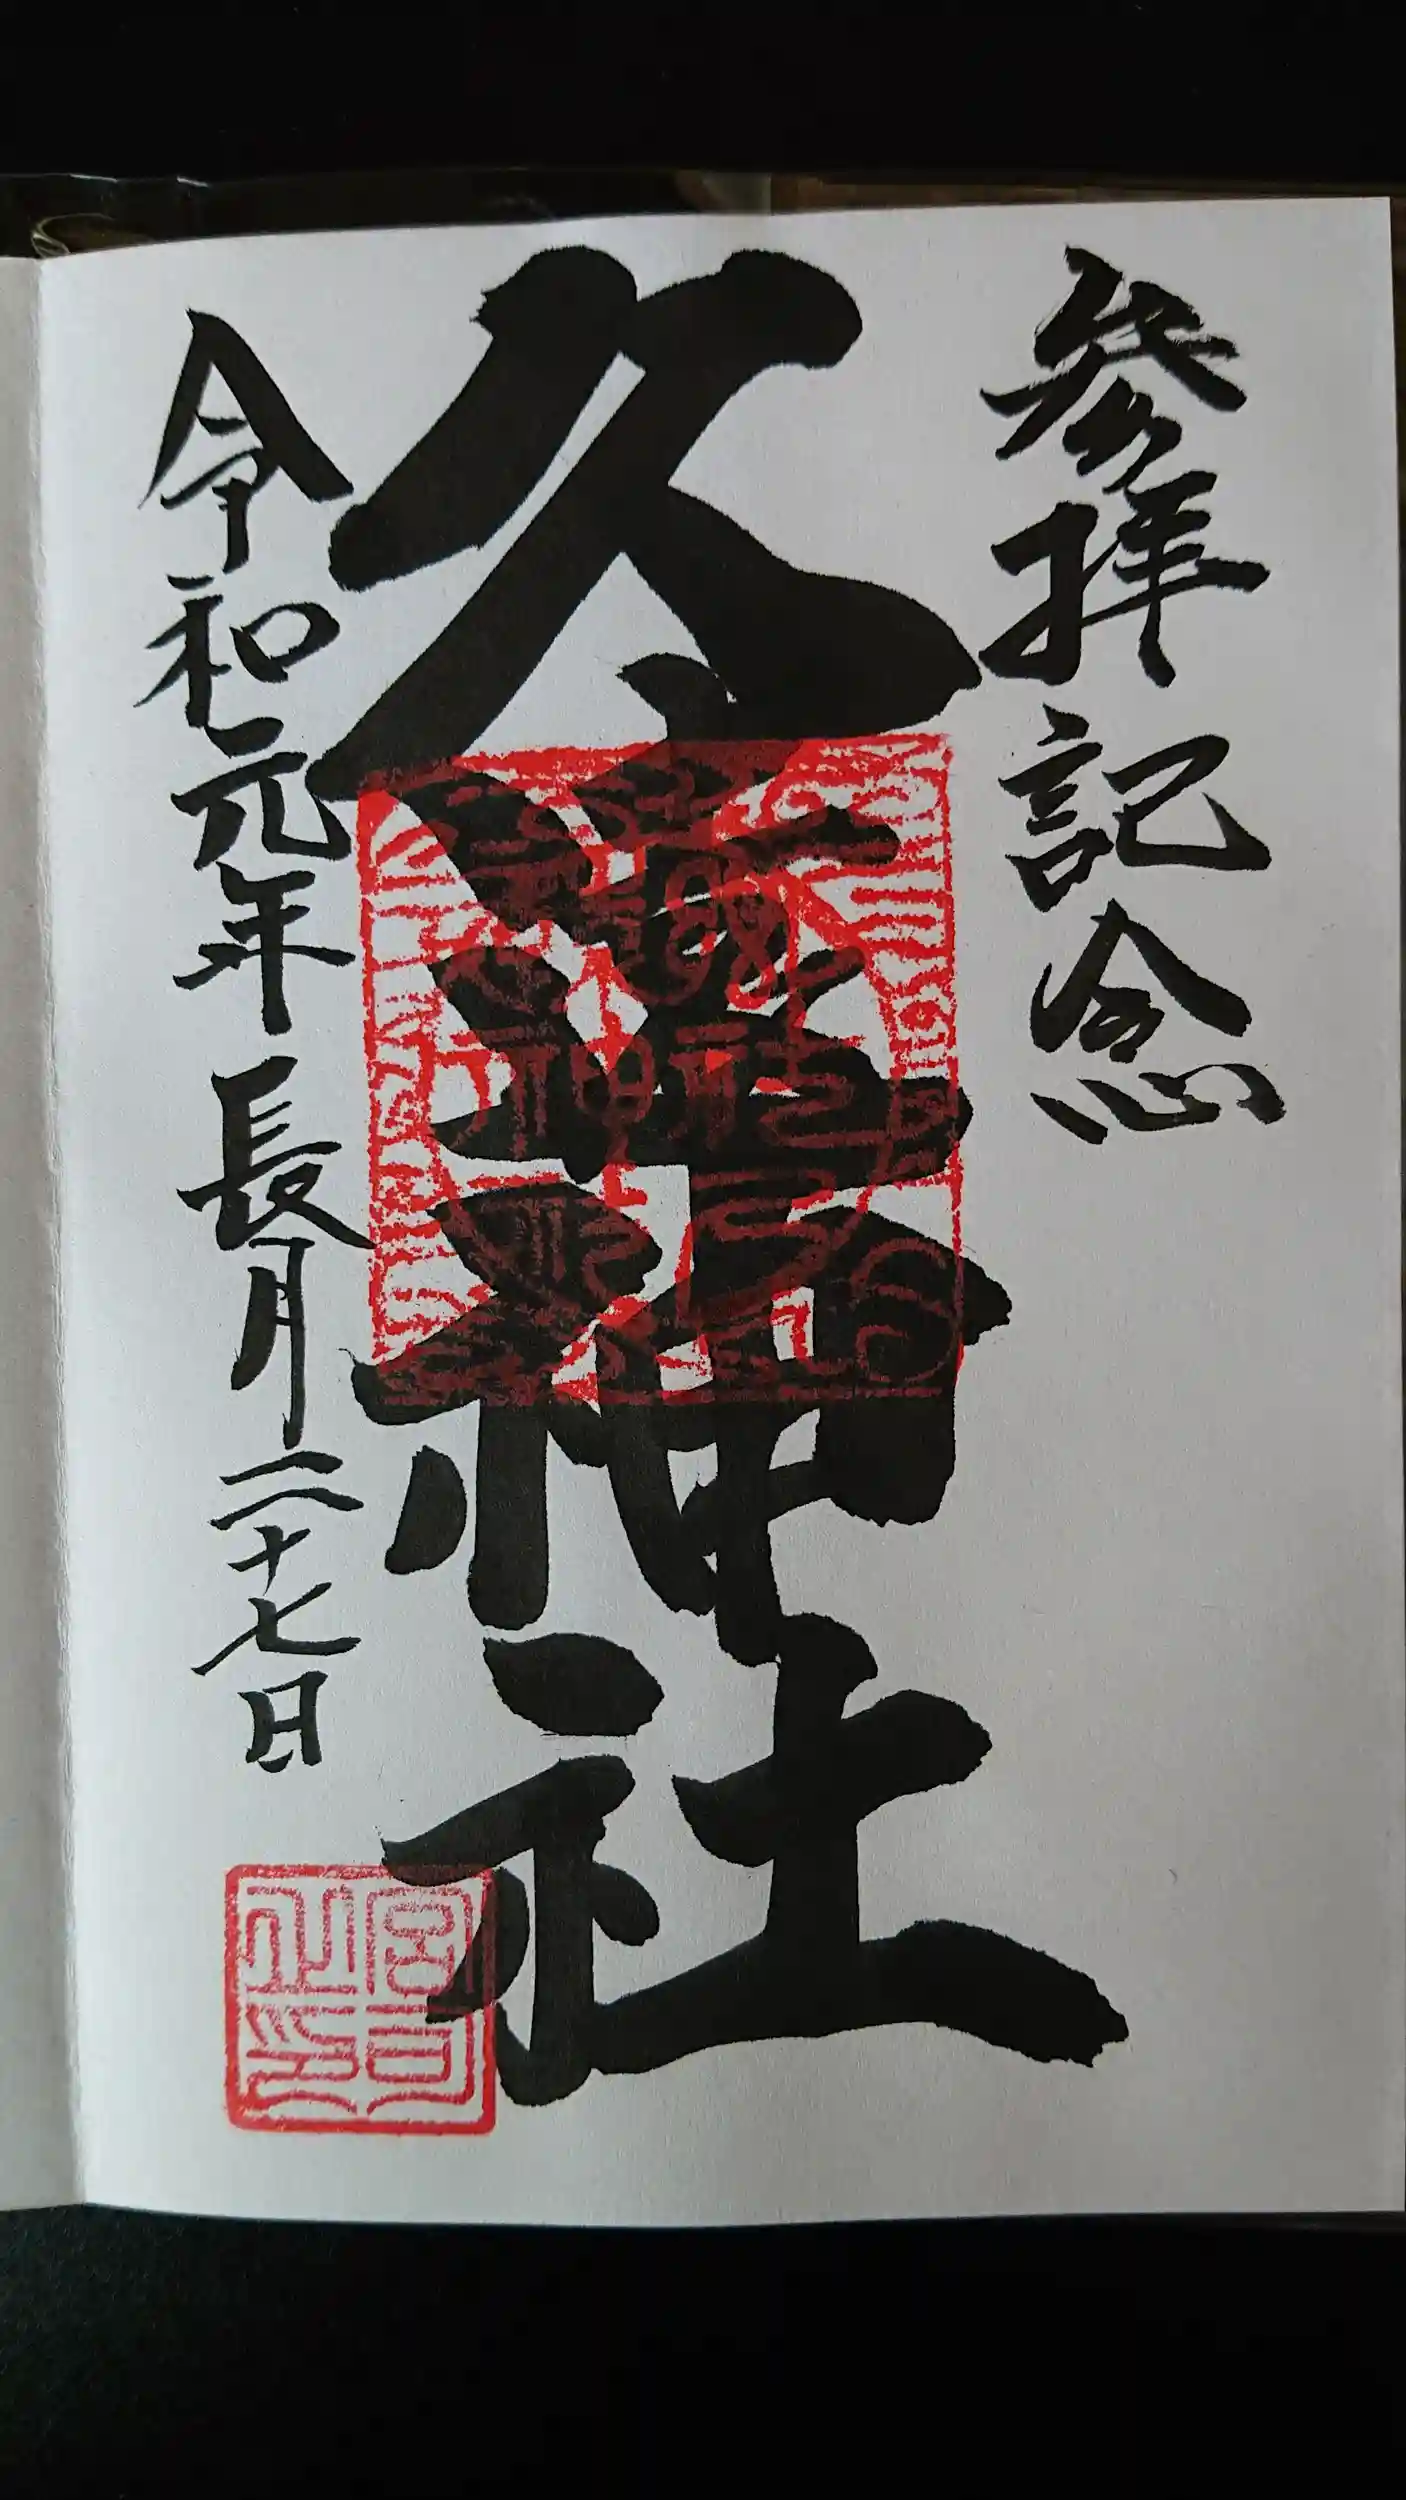 参拝記念
久
神社
令和元年長月二十七日